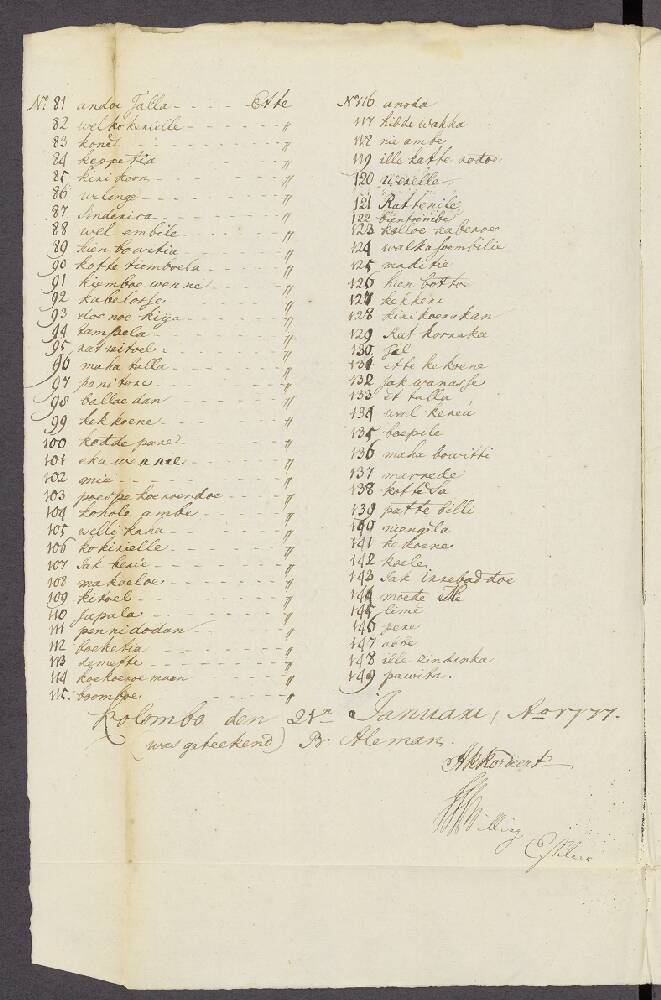 No 81 andoe Talla - - - - Ette
82 wel kokenielle - - - - - - "
83 kone - - - - - - "
84 keppetia - - - - - - "
85 kini koon - - - - - - "
86 welange - - - - - - "
87 Sindenira - - - - - - "
88 wel embile - - - - - - "
89 kien bowitia - - - - - - "
90 kotte temboela - - - - "
91 kiemboe wenne - - - - "
92 kabelosse - - - - - - "
93 doe noe kiya - - - - "
94 tampala - - - - - - "
95 rat nitoel - - - - - - "
96 maha talla - - - - - - "
97 peni tore - - - - - - "
98 balloe dan - - - - - - "
99 kek koene - - - - - - "
100 kodde pere - - - - - - "
101 eka wennoe - - - - - - "
102 mie - - - - - - "
103 poespe koewendoe - - - - "
104 koholo ambe - - - - "
105 welli kaha - - - - - - "
106 kokirielle - - - - - - "
107 Jak kenie - - - - - - "
108 makoeloe - - - - - - "
109 kitoel - - - - - - "
110 Japala - - - - - - "
111 pennidodan - - - - - - "
112 boeketia - - - - - - "
113 demette - - - - - - "
114 koekoeroe maan - - - - "
115 boomboe - - - - - - "
No 116 anoda
117 kibde wakka
118 nia ambe
119 ille katte rodoe
120 werelle
121 Rattenile
122 bientenibe
123 kalloe naberoe
124 walkasoembilie
125 maditie
126 hien botto
127 kekkene
128 kini koerakan
129 Rat Korakka
130 Jal
131 ette kekoene
132 Jak wanasse
133 et talla
134 wal keneú
135 boepele
136 maha bowitti
137 marrede
138 kottesa
139 patte billi
140 mongila
141 kekoene
142 koele
143 Jak inrebaddoe
144 moete Ille
145 lime
146 pere
147 abbe
148 ille zindroka
149 pawitta
Kolombo den 21en Januari, Ao 1777.
(was geteekend) B: Aleman.
Akkordeert
Billing